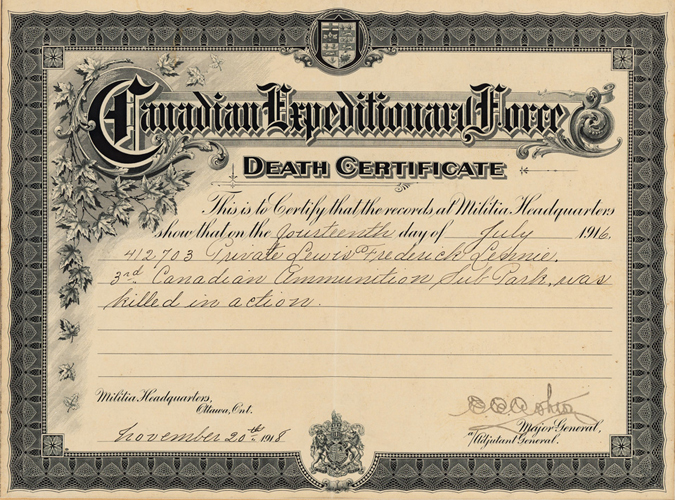 Canadian Expeditionary Force
DEATH CERTIFICATE
This is to Certify that the records at Militia Headquarters
show that on the fourteenth day of July 1916.
412703 Private Lewis Frederick
3rd Canadian Ammunition Sub Park, was
killed in action.
Militia Headquarters,
Ottawa, Ont.
November 20th 1918
Major-General,
Adjutant General.